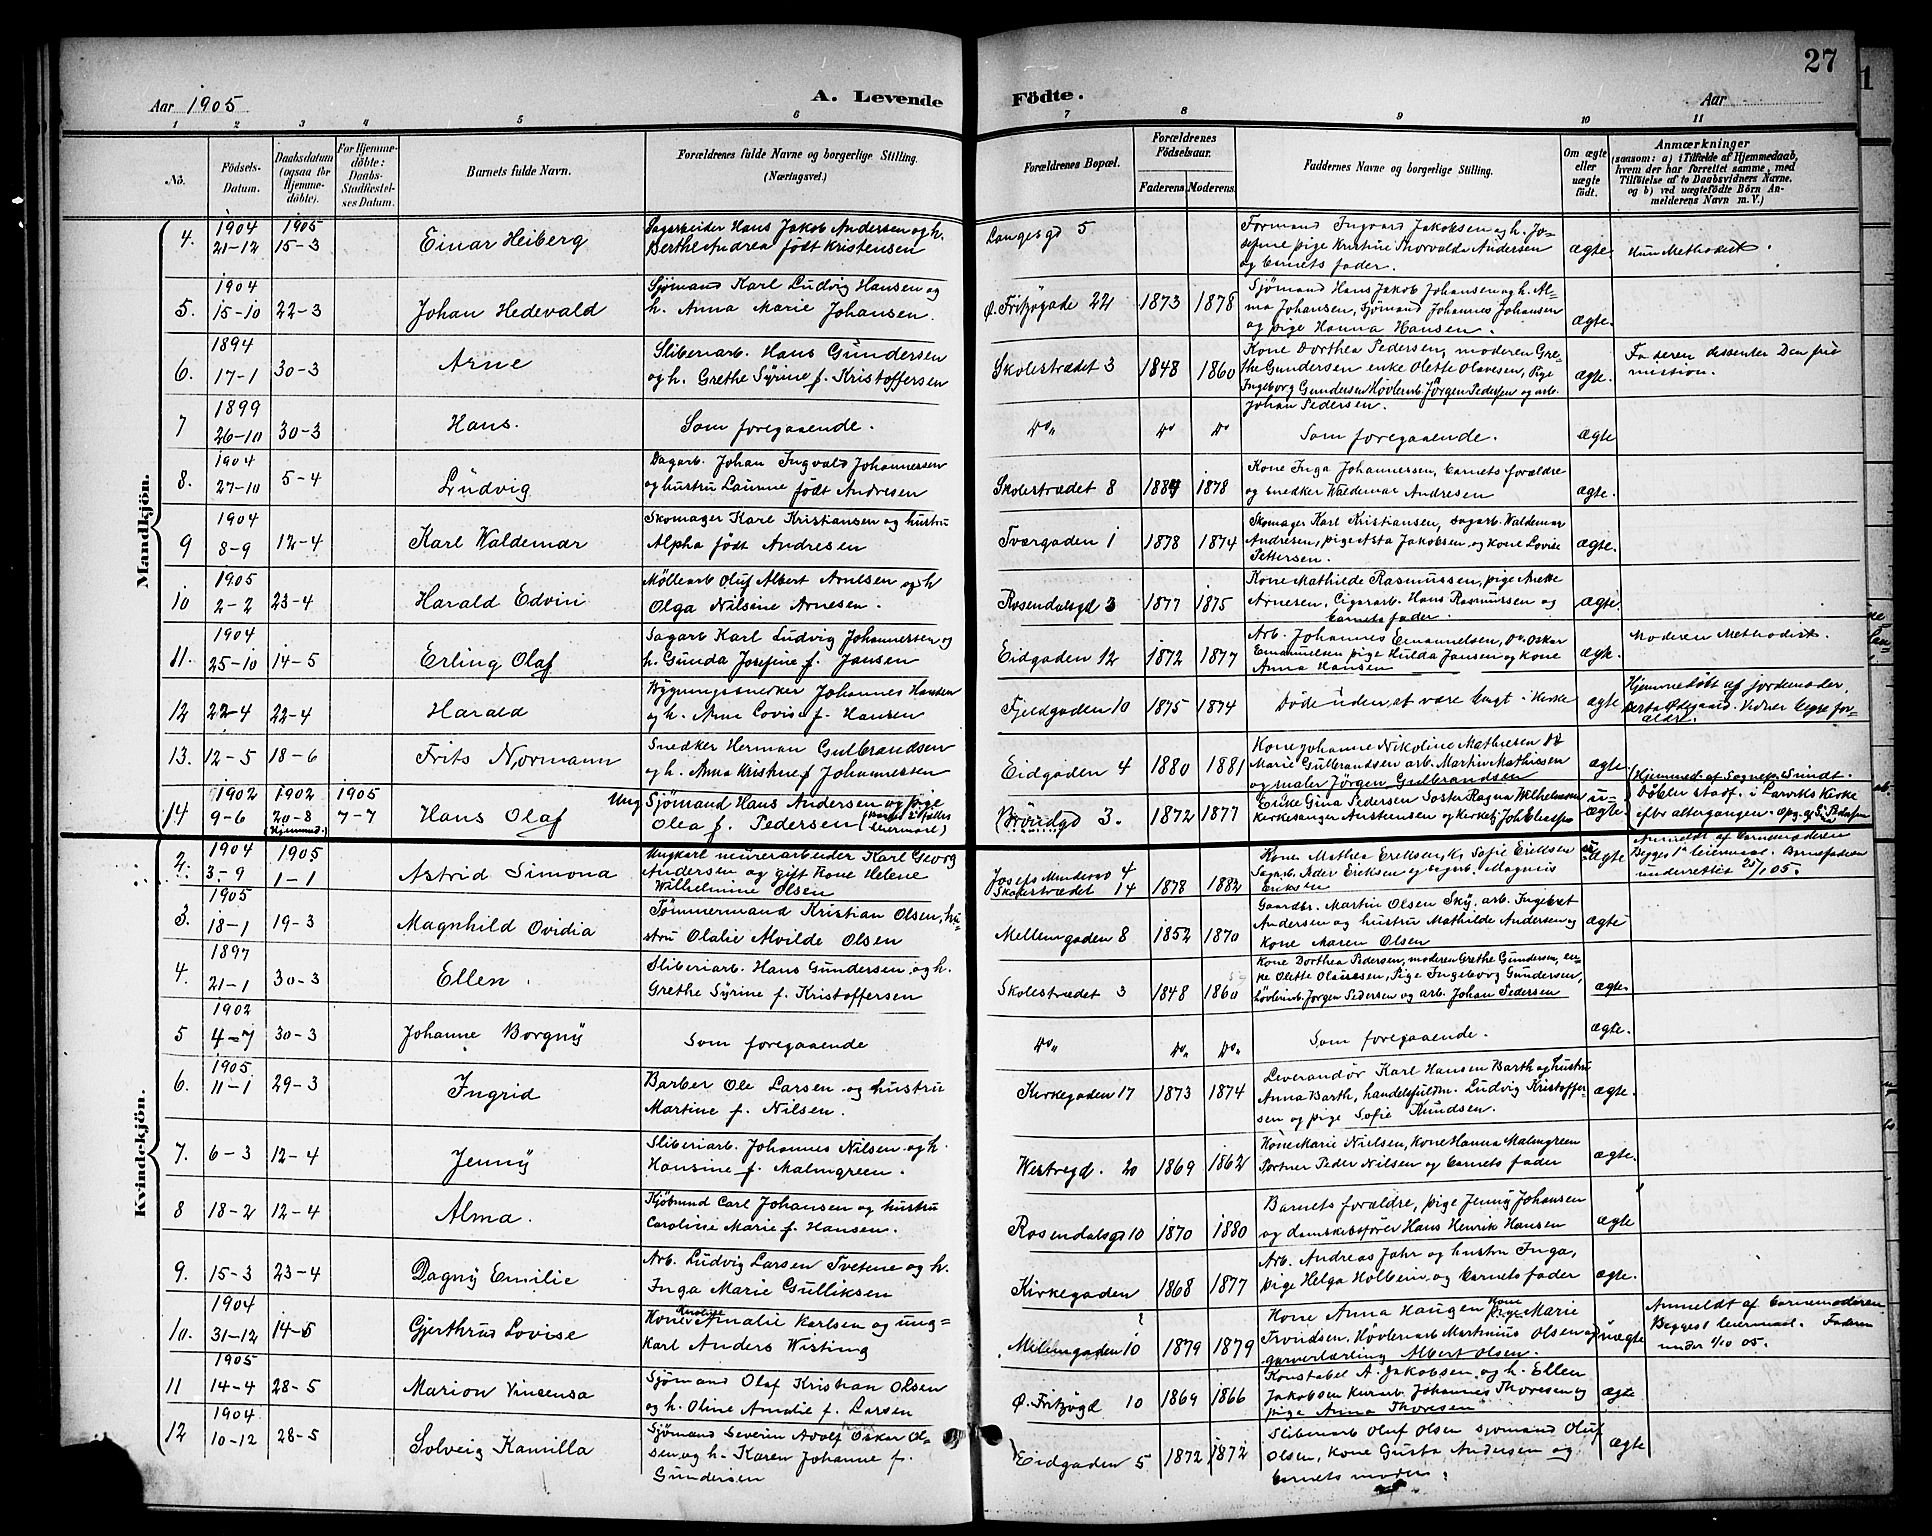 27
Aar 1905
A. Levende Födte.
Aar
1 2 3 4 5 6 7 8 9 10 11
No.
Födsels-Datum.
Daabsdatum (ogsaa for Hjemme-döbte).
For Hjemme-döbte: Daabs-Stadfæstelses Datum.
Barnets fulde Navn.
Forældrenes fulde Navne og borgerlige Stilling. (Næringsvei.)
Forældrenes Bopæl.
Forældrenes Födselsaar.
Faderens. Moderens.
Faddernes Navne og borgerlige Stilling.
Om ægte eller uægte födt.
Anmærkninger
(saasom: a) i Tilfælde af Hjemmedaab, hvem der har forrettet samme, med Tilföielse af to Daabsvidners Navne, og b) ved uægtefödte Börn Anmelderens Navn m. V.)
Mandkjön.
4. 1904 21-12 1905 15-3 Einar Heiberg
Sagarbeider Hans Jakob Andersen og h.
Berthe Andrea født Kristensen
Langesgd 5
Formand Ingvard Jakobsen og h. Jo-
sefine pige Kristine Thorvalda Andersen
og barnets fader.
ægte. Hun Methodist.
5. 1904 15-10 22-3 Johan Hedevald
Sjømand Karl Ludvig Hansen og
h. Anna Marie Johansen.
Ø. Fritzøgade 22 1873 1878
Sjømand Hans Jakob Johansen og h. Al-
ma Johansen, Sjømand Johannes Johansen
og pige Hanna Hansen.
ægte.
6. 1894 17-1 30-3 Arne
Sliberiarb. Hans Gundersen
og h. Grethe Syrine f. Kristoffersen
Skolestrædet 3 1848 1860
Kone Dorthea Pedersen, moderen Gre-
the Gundersen enke Olette Olavesen, Pige
Ingeborg Gundersen Høvlerarb. Jörgen Pedersen og arb.
Johan Pedersen.
ægte. Faderen dissenter Den fri
mission.
7 1899 26-10 30-3 Hans.
Som foregaaende.
do do do
Som foregaaende.
ægte
8. 1904 27-10 5-4 Ludvig
Dagarb. Johan Ingvald Johannersen
og hustru Laurine født Andresen
Skolestrædet 8 1884 1878
Kone Inga Johannersen, barnets forældre
og snedker Waldemar Andresen
ægte.
9 1904 8-9 12-4 Karl Waldemar
Skomager Karl Kristiansen og hustru
Alpha født Andresen
Tværgaden 1 1878 1874
Skomager Karl Kristiansen, sagarb. Waldemar
Andresen, pige Asta Jakobsen og kone Lovise
Pettersen.
ægte.
10 1905 2-2 23-4 Harald Edvin
Møllearb Oluf Albert Arnesen og h
Olga Nilsine Arnesen.
Rosendalsgd 3 1877 1875
Kone Mathilde Rasmussen, pige Anette
Arnesen, Cigararb. Hans Rasmussen og
barnets fader.
ægte.
11. 1904 25-10 14-5 Erling Olaf
Sagarb Karl Ludvig Johannersen og
h. Gunda Josefine f. Jansen
Eidgaden 12 1872 1877
Arb. Johannes Emanuelsen, Do. Oskar
Emanuelsen pige Hulda Jansen og kone
Anna Hansen
ægte. Moderen Methodist.
12 22-4 22-4 Harald
Bygningssnedker Johannes Hansen
og h. Anne Lovise f. Hansen
Fjeldgaden 10 1875 1874
Døde uden at være bragt i Kirke
ægte Hjemmedøbt af jordemoder
Berta Ødegaard. Vidner begge for-
ældre.
13. 12-5 18-6 Frits Normann
Snedker Herman Gulbrandsen
og h. Anna Kristine f Johannessen
Eidgaden 4 1880 1881
Kone Johanne Nikoline Mathiesen do
Marie Gulbrandsen arb. Martin Mathiesen
og maler Jörgen Gulbrandsen
ægte
14 1902 9-6 1902 20-8 (Hjemmed.) 1905 7-7 Hans Olaf
Ung Sjømand Hans Andersen og pige
Olea f. Pedersen
Brøndgd 3. 1872 1877
Enke Gina Pedersen Søster Ragna Wilhelmsen
u-ægte
(Hjemmed. af Sognep. Sundt.
Dåben stadf. i Larviks Kirke
efter altergangen.
Kvindekjön.
2. 1904 3-9 1905 1-1 Astrid Simona
Ungkarl mürerarbeider Karl Georg
Andersen og gift kone Helene
Wilhelmine Olsen
Skolestrædet 14 1878 1882
Kone Mathea Eriksen, Sofie Eriksen
Sagarb. Peder Eriksen og Magnus
Eriksen
uægte Anmeldt af barnemoderen
Begges 1ste leiermaal. Barnefaderen
underrettet
3. 1905 18-1 19-3 Magnhild Ovidia
Tömmermand Kristian Olsen, hu-
stru Olalie Alvilde Olsen
Mellemgaden 8 1852 1870
Gaardbr. Martin Olsen Sky, arb. Ingebret
Andersen og hustru Mathilde Andersen og
kone Maren Olsen
ægte
4. 1897 21-1 30-3 Ellen.
Sliberiarb. Hans Gundersen, og h.
Grethe Syrine f. Kristoffersen
Skolestrædet 3 1848 1860
Kone Dorthea Pedersen, moderen Grethe Gundersen, en-
ke Olette Olavesen, Pige Ingeborg Gundersen,
Høvlerarb. Jorgen Pedersen og arb. Johan Pedersen
ægte
5 1902 4-7 30-3 Johanne Borgny
Som foregaaende
do, do, do,
Som foregaaende.
ægte.
6. 1905 11-1 29-3 Ingrid
Barber Ole Larsen og hustru
Martine f. Nilsen.
Kirkegaden 17 1873 1874
Leverandør Karl Hansen Barth og hustru
Anna Barth, handelsfuldm. Ludvig Kristoffer-
sen og pige Sofie Knudsen.
ægte.
7. 6-3 12-4 Jenny
Sliberiarb. Johannes Nilsen og h.
Hansine f. Malmgreen.
Westregd. 20 1869 1862
Kone Marie Nielsen, kone Hanna Malmgreen
Portner Peder Nilsen og barnets fader
ægte.
8 18-2 12-4 Alma.
Kjøbmand Carl Johansen og hustru
Caroline Marie f. Hansen.
Rosendalsgd 10 1870 1880
Barnets forældre, pige Jenny Johansen
og damskibsfører Hans Henrik Hansen
ægte
9. 15-3 23-4 Dagny Emilie
Arb. Ludvig Larsen Tvetene og h.
Inga Marie Gulliksen
Kirkegaden 1868 1877
Arb. Andreas Jahr og hustru Inga,
pige Helga Holbein og barnets fader
ægte.
10. 1904 31-12 14-5 Gjerthrud Lovise
Kone Amalie Karlsen og ung-
karl Anders Wisting
Mellemgaden 10 1879 1879
Kone Anna Haugen Kone Pige Marie
Trondsen, Høvlerarb Martinius Olsen og
garverlærling Albert Olsen.
uægte Anmeldt af barnemoderen
Begges 1 leiermaal. Faderen
under 4/10 05.
11 1905 14-4 28-5 Marion Vincensa
Sjømand Olaf Kristian Olsen
og h. Oline Amalie f. Larsen
Ø. Fritzøgd 10 1869 1866
Konstabel A. Jakobsen og h. Ellen
Jakobsen Kurarb. Johannes Thoresen og
pige Anna Thoresen
ægte
12 1904 10-12 28-5 Solveig Kamilla
Sjømand Severin Adolf Oskar Ol-
sen og h. Karen Johanne f.
Gundersen
Eidgaden 5 1872 1872
Sliberiarb Oluf Olsen sjømand Oluf
Olsen, kone Gusta Andersen og
barnets moder.
ægte